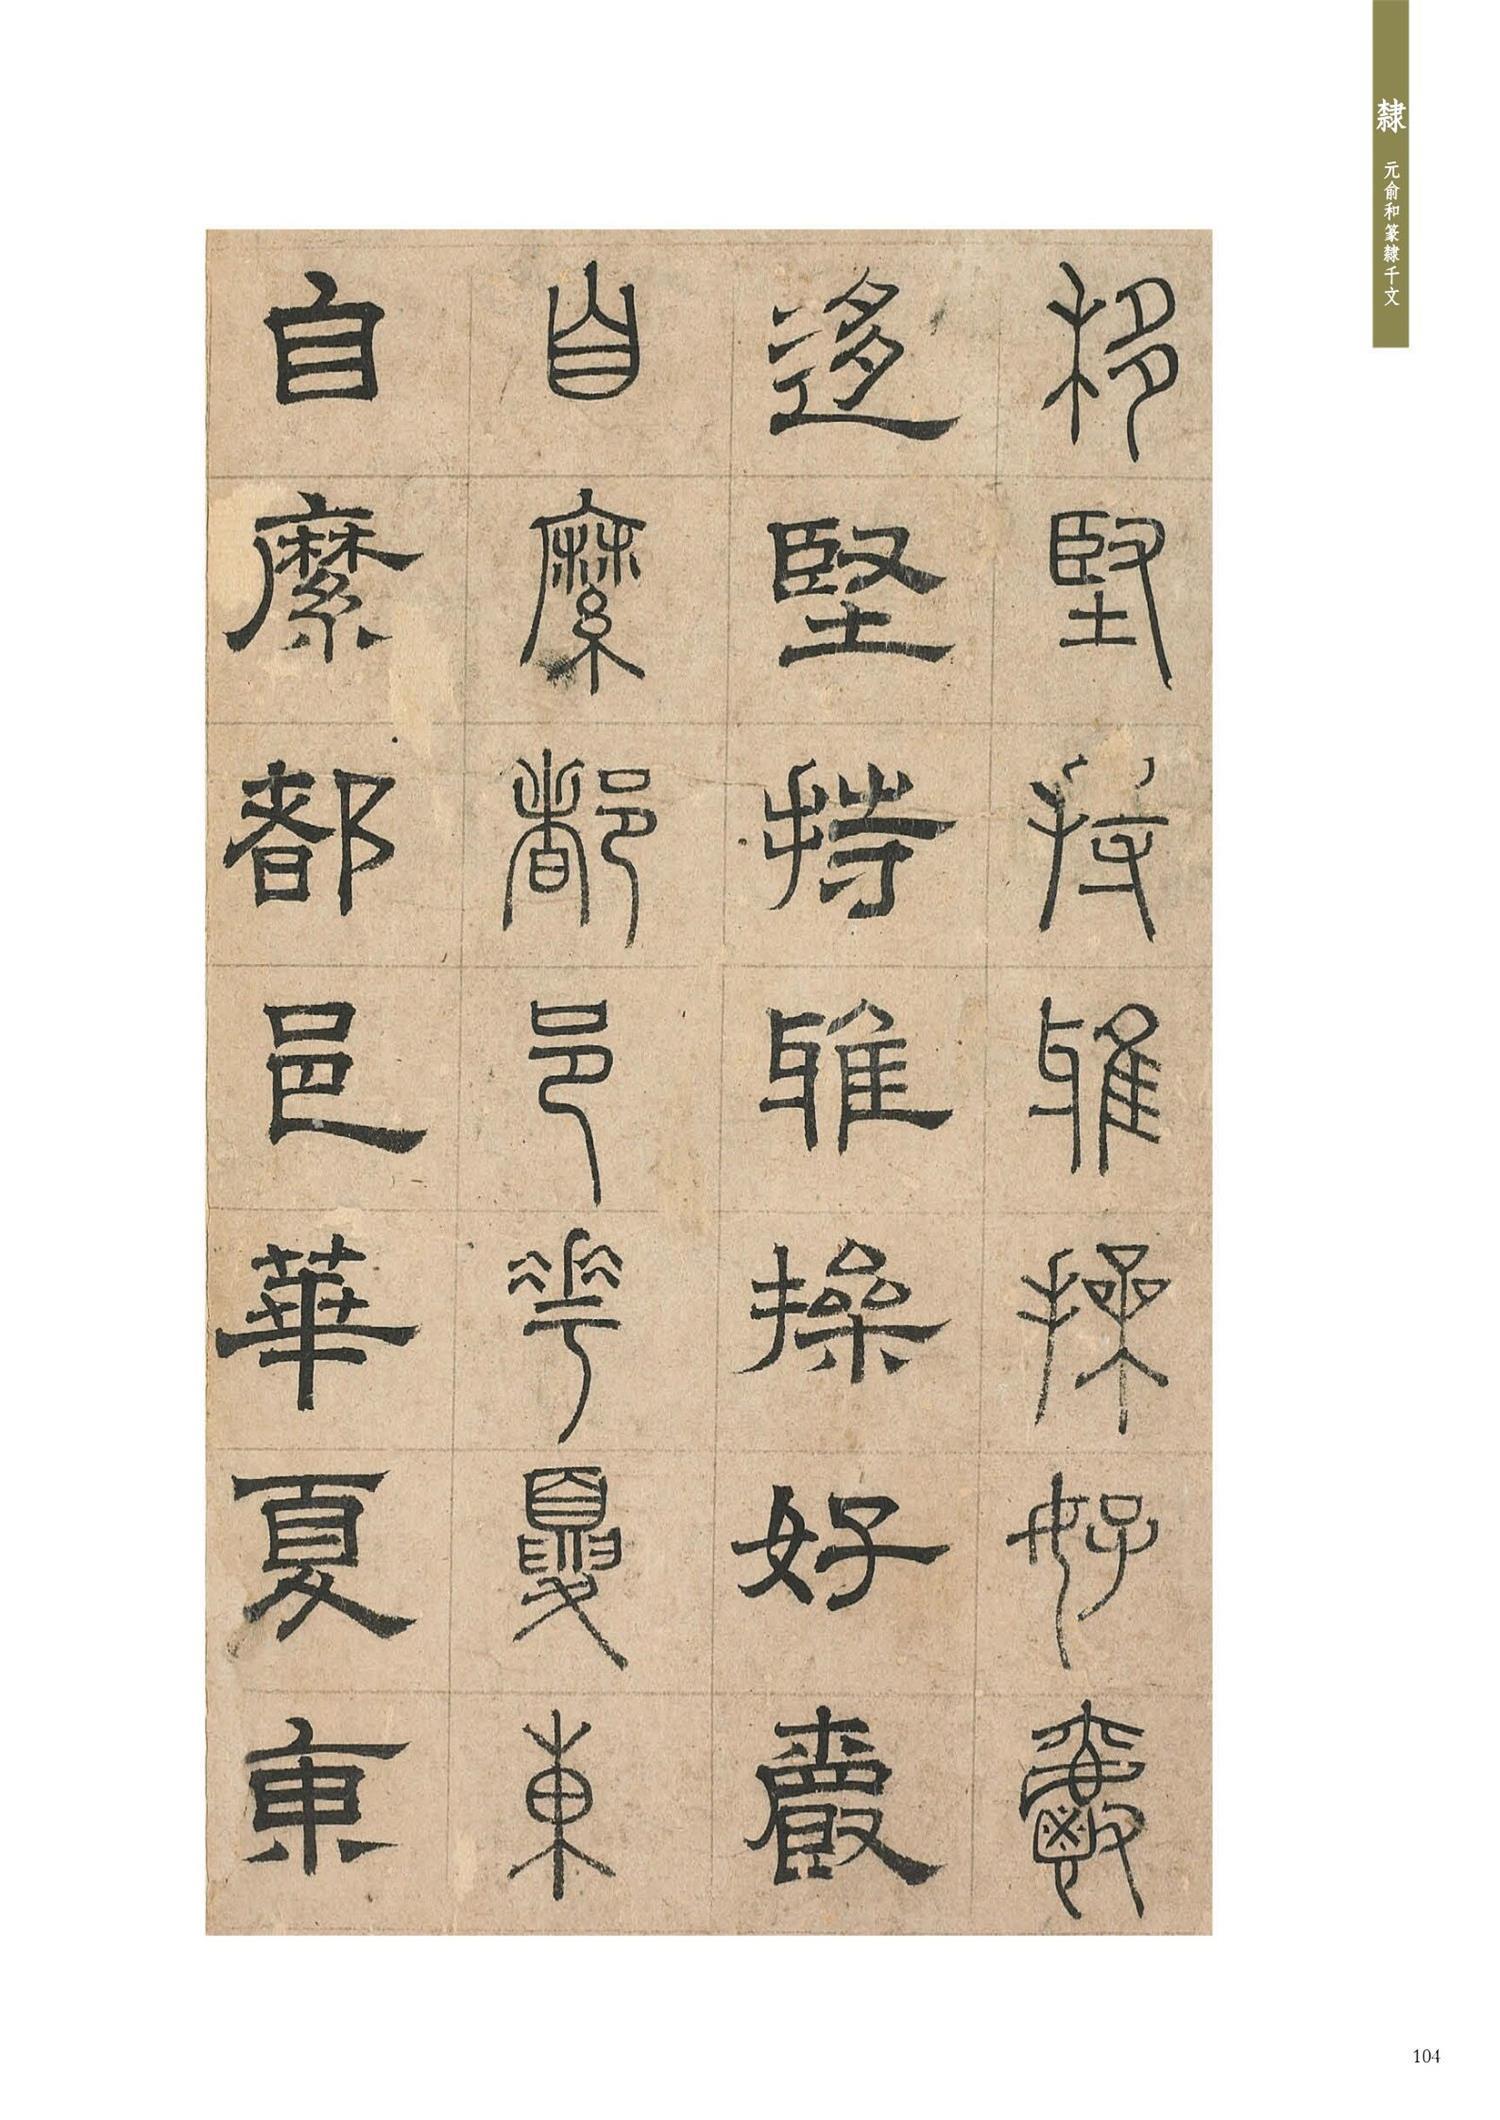 隸
元俞和篆隸千文
移堅持雅操好爵
迻堅持雅操好爵
自縻都邑華夏東
自縻都邑華夏東
104